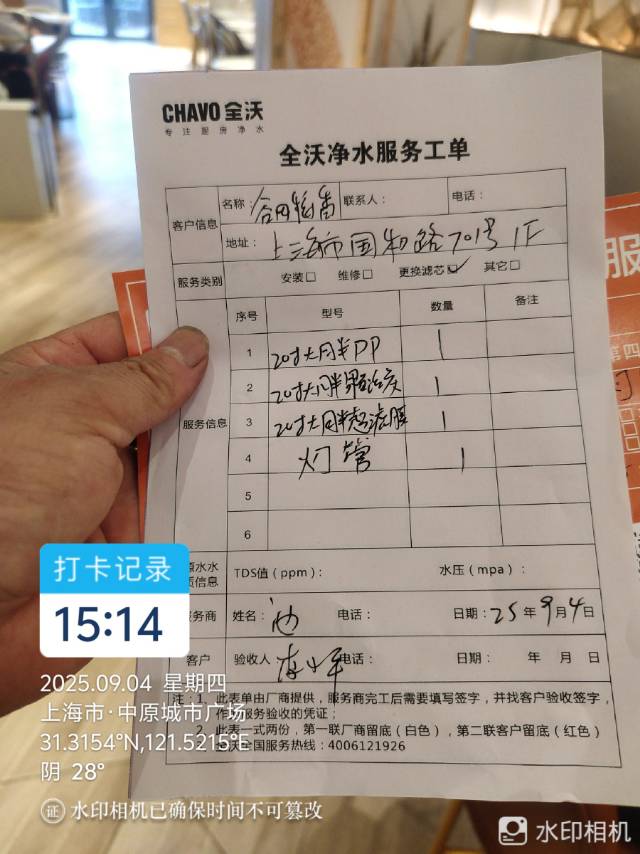 CHAVO 全沃
专注厨房净水
全沃净水服务工单
客户信息 名称： 联系人： 电话：
地址：上海市国和路701号1F
服务类别 安装□ 维修□ 更换滤芯☑ 其它□
服务信息
序号 型号 数量 备注
1 20寸大胖PP 1
2 20寸大胖 1
3 20寸大胖超滤膜 1
4 灯管 1
5
6
原水水质信息 TDS值（ppm）： 水压（mpa）：
服务商 姓名： 电话： 日期：25年9月4日
客户 验收人 电话： 日期： 年 月 日
注：1、此表单由厂商提供，服务商完工后需要填写签字，并找客户验收签字，
作为服务验收的凭证；
2、此表一式两份，第一联厂商留底（白色），第二联客户留底（红色）
全沃全国服务热线：4006121926
服
第四
打卡记录
15:14
2025.09.04 星期四
上海市·中原城市广场
31.3154°N,121.5215°E
阴 28°
证 水印相机已确保时间不可篡改
水印相机